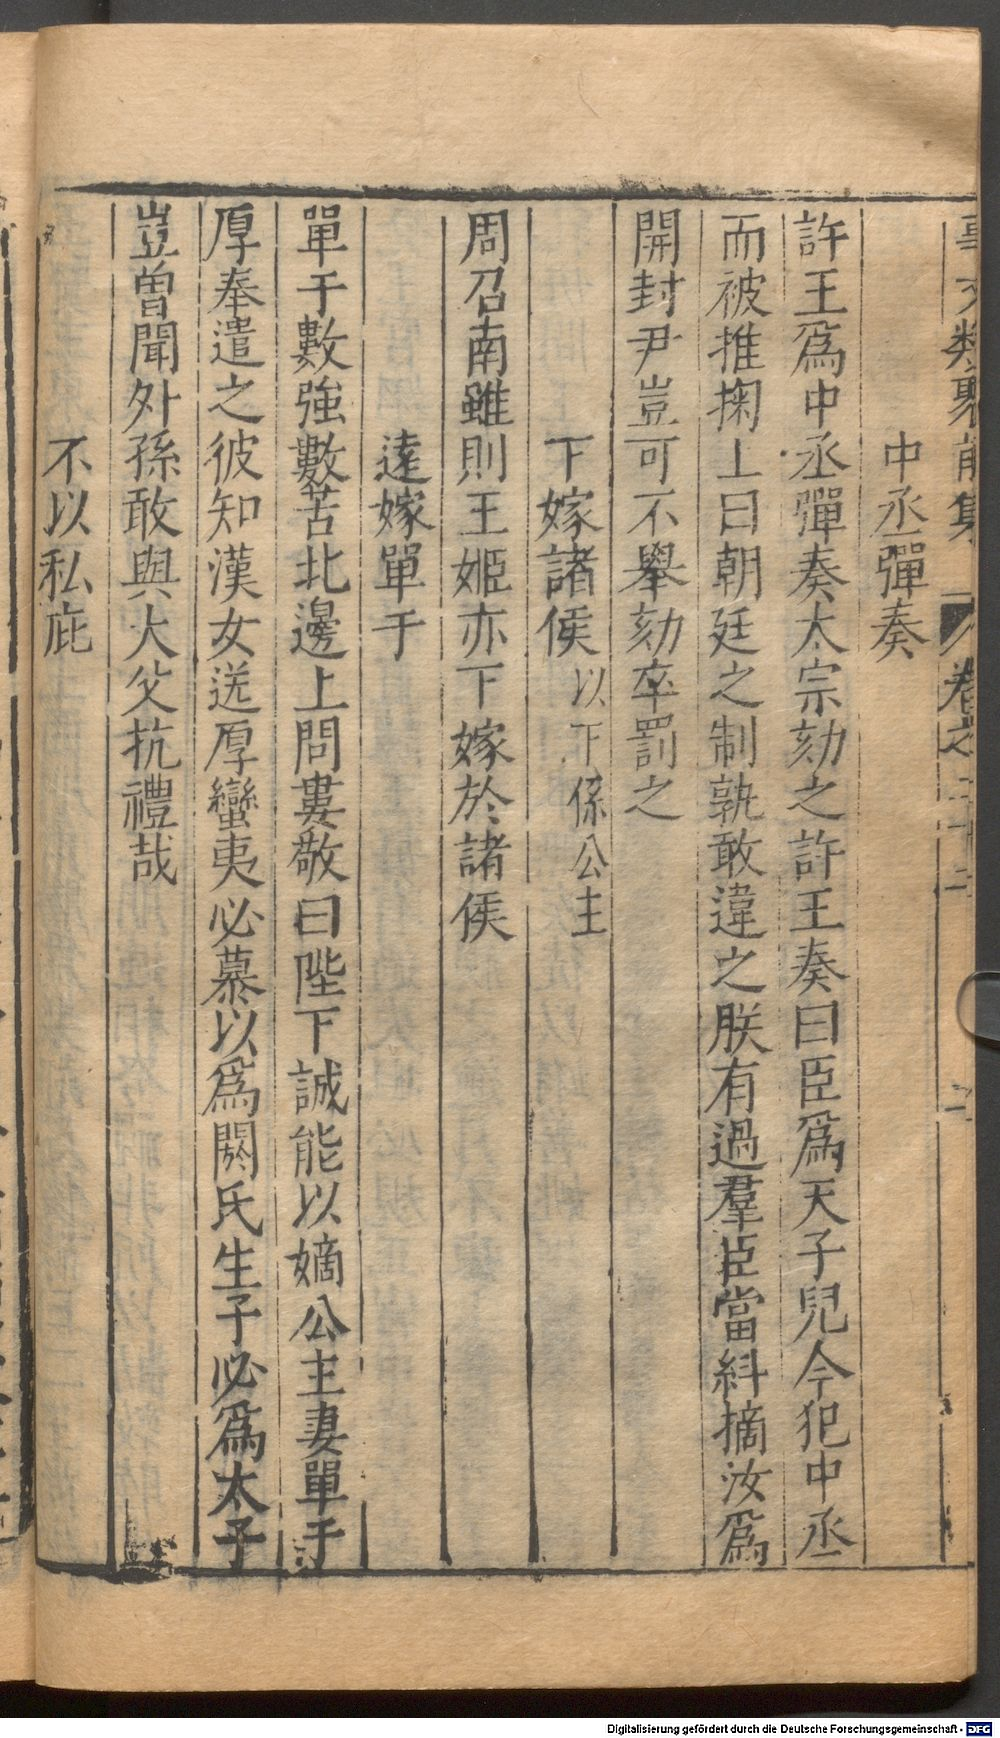 事文類聚前集 卷之二十二 二
中丞彈奏
許王爲中丞彈奏太宗劾之許王奏曰臣爲天子兒今犯中丞
而被推掬上曰朝廷之制孰敢違之朕有過羣臣當糾摘汝爲
開封尹豈可不舉劾卒罰之
下嫁諸侯 以下係公主
周召南雖則王姬亦下嫁於諸侯
遠嫁單于
單于數強數苦北邊上問婁敬曰陛下誠能以嫡公主妻單于
厚奉遣之彼知漢女送厚蠻夷必慕以爲閼氏生子必爲太子
豈曽聞外孫敢與大父抗禮哉
不以私庇
Digitalisierung gefördert durch die Deutsche Forschungsgemeinschaft - DFG